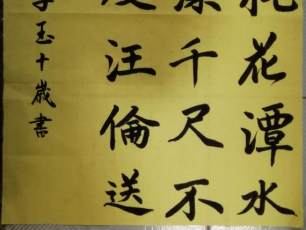 桃花潭水
深千尺不
及汪倫送
玉十歲書